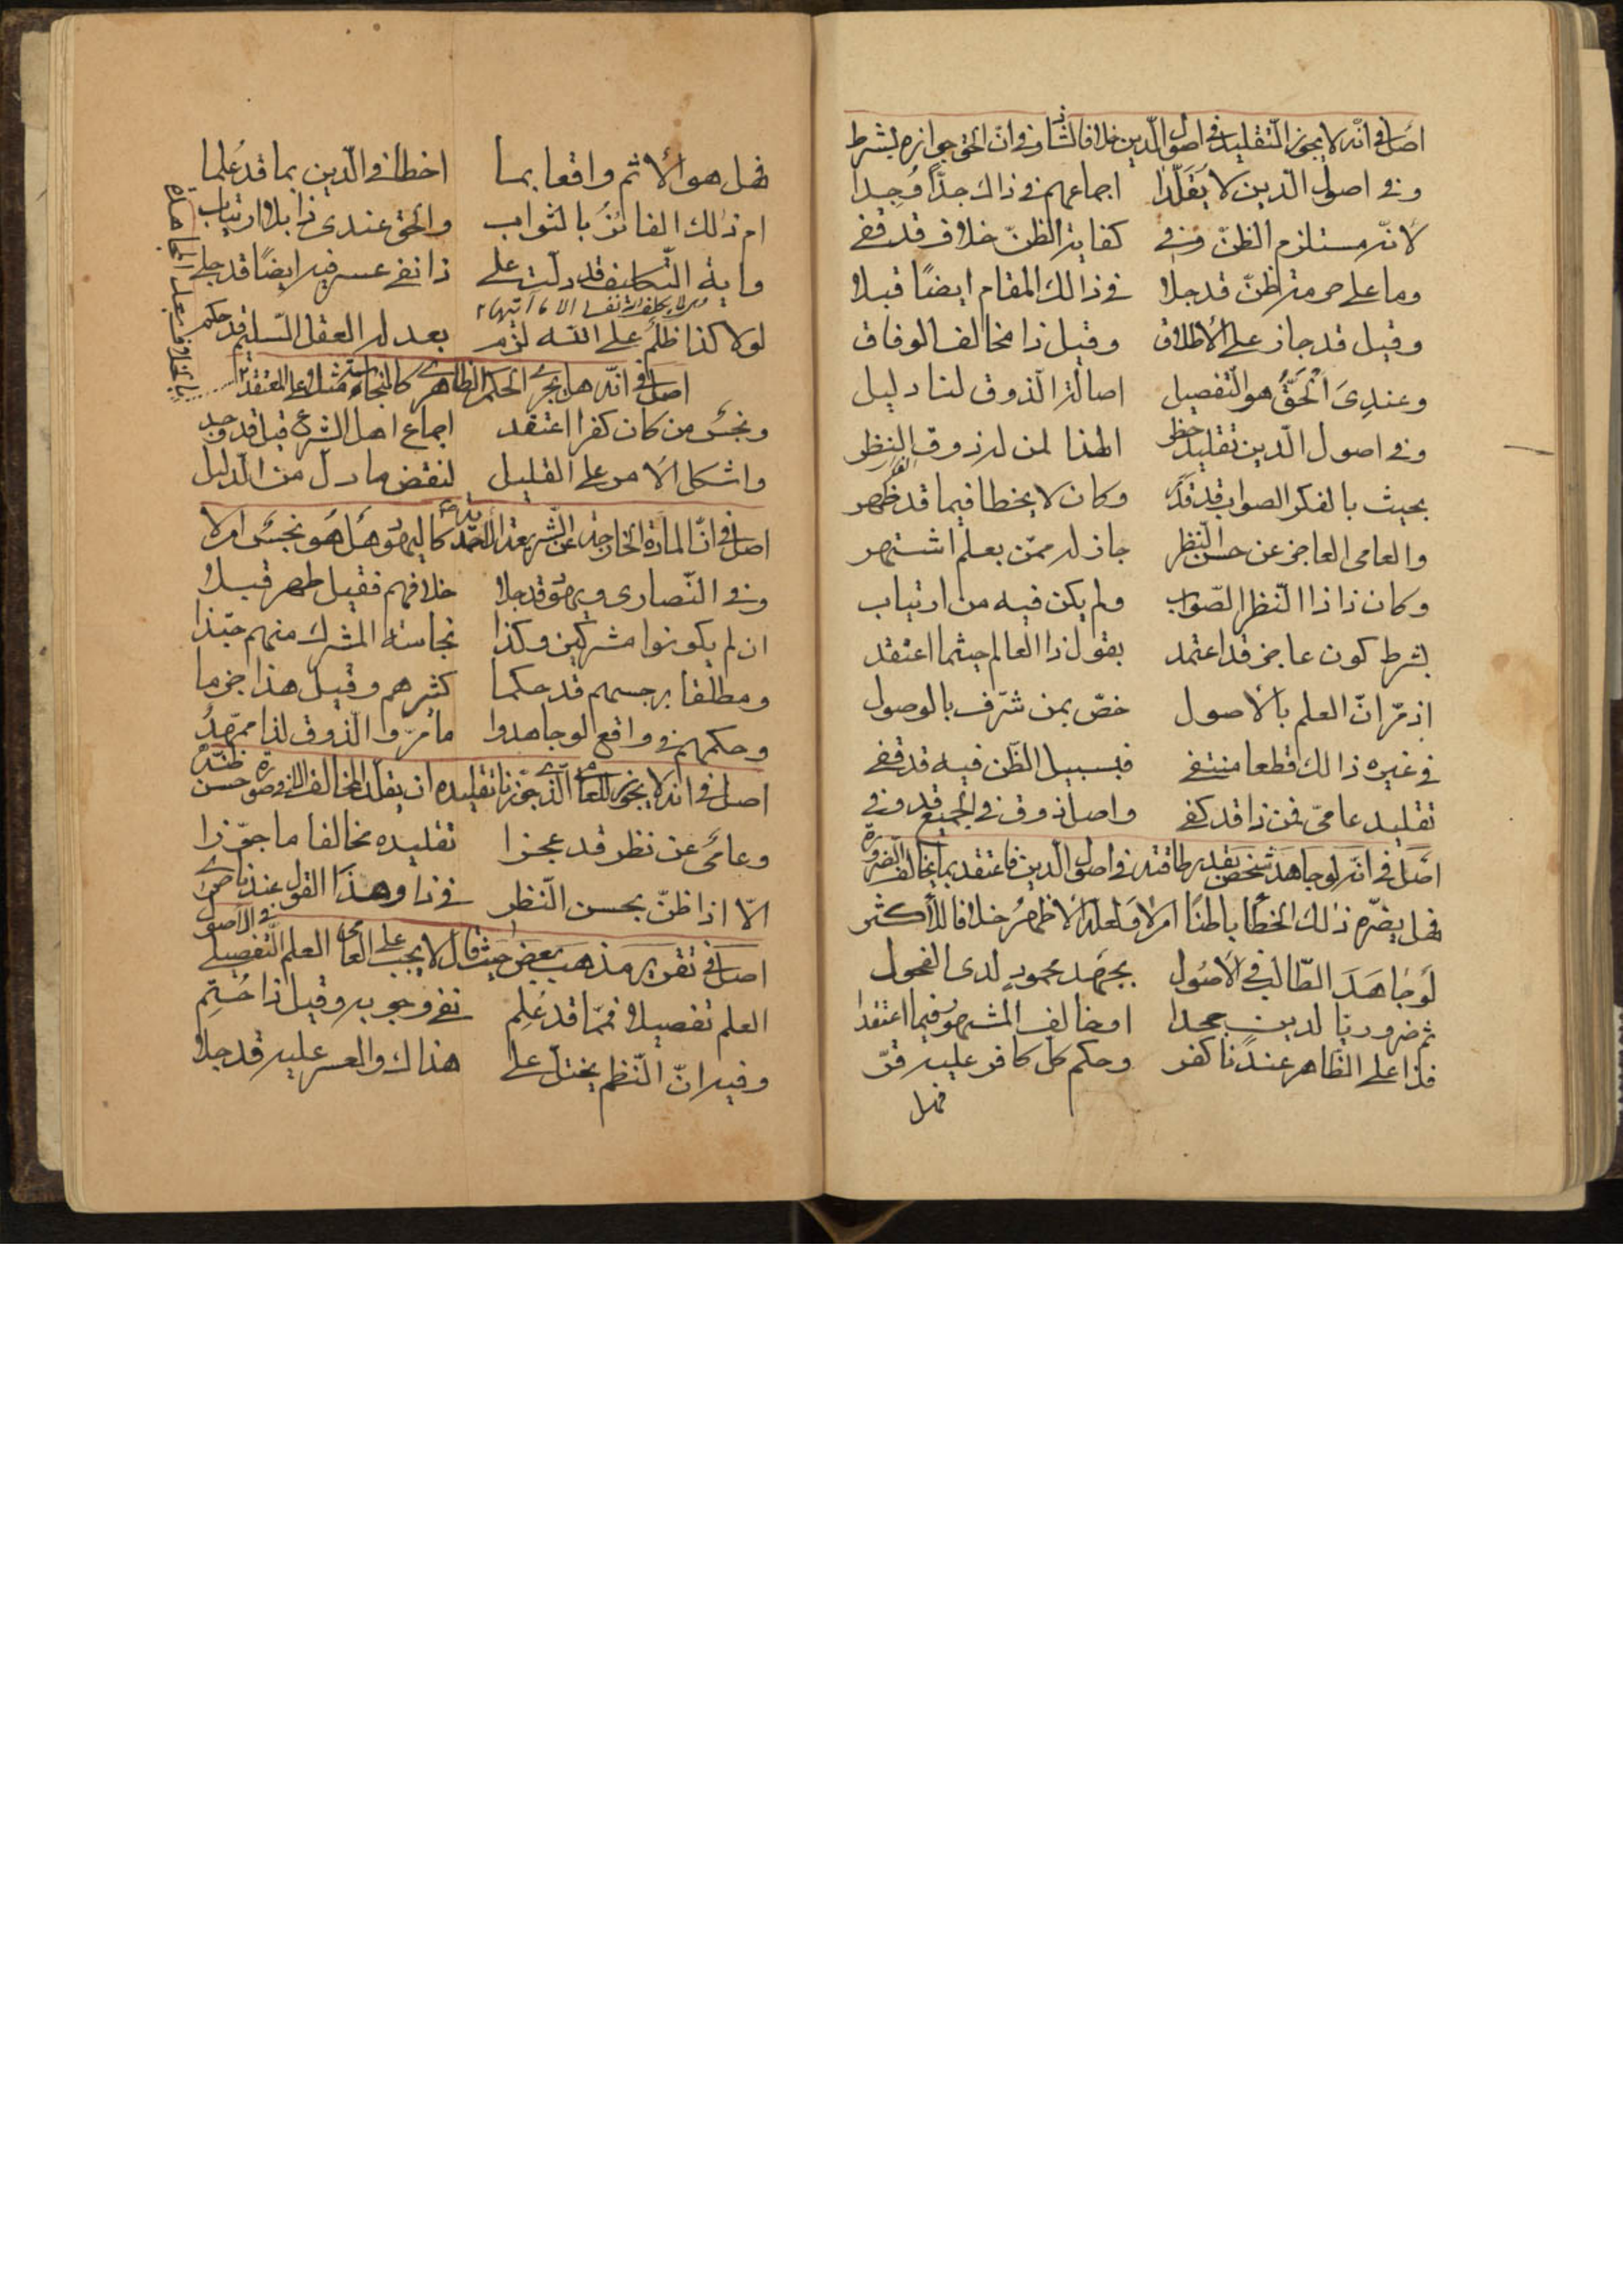 اصل في انه لا يجوز التقليد في اصول الدين خلافا لشاذ وفي ان الحق جوازه بشرط
وفي اصول الدين لا يُقَلَّدا اجماعهم في ذاك جدًّا وُجِدا
لانه مستلزم الظنّ وفي كفاية الظنّ خلاف قد قفي
وما على حرمة ظنّ قد جلا في ذالك المقام ايضًا قبلا
وقيل قد جاز على الأطلاق وقيل ذا مخالف الوفاق
وعندِىَ الْحَقُّ هو التفصيل اصالة الذوق لنا دليل
وفي اصول الدين تقليد حظر الهذا لمن له ذوق النظر
بحيث بالفكر الصواب قد قدر وكان لا يخطا فيما قد ظهر
والعامى العاجز عن حسن النظر جاز له ممّن بعلم اشتهر
وكان ذا ذا النّظر الصّواب ولم يكن فيه من ارتياب
بشرط كون عاجز قد اعتمد بقول ذا العالم حيثما اعتقد
اذ مرّ انّ العلم بالأصول خصّ بمن شرّف بالوصول
في غيره ذالك قطعا منتفي فبسبيل الظّن فيه قد قفي
تقليد عامىّ فمن ذا قد كفي واصل ذوق في الجميع قد وفي
اصل في انه لو جاهد شخص بقدر طاقته في اصول الدين فاعتقد بما يخالف الضرورة
فهل يضرّه ذلك الخطأ باطنًا ام لا ولعله الاظهرُ خلافا للأكثر
لَو جَاهَدَ الطّالب في الأصُول بجَهد محمودٍ لدى الفحول
ثم ضروريا لدين جحدا او خالف المشهور فيما اعتقدا
فذا على الظّاهر عندنا كفر وحكم كل كافر عليه قرّ
فهل
فهل هو الأثم واقعا بما اخطأ في الدين بما قد عُلما
ام ذلك الفائزُ بالثواب والحق عندى ذا بلا ارتياب
واية التكليف قد دلّت على ذا نفى عسر فيه ايضًا قد جلى
لا يكلف الله نفسا الا ما آتيها
لولا كذا ظلمٌ على الله لزم بعد له العقل السّليم قد حكم
اصل في انه هل يجرى الحكم الظاهرى كالنجاسة مثلا على المعتقد
ونجسٌ من كان كفرا اعتقد اجماع اهل الشرع قيل قد وجد
واشكل الأمر على القليل لنقض ما دل من الدّليل
اصل في انّ المارة الخارجة عن الشريعة المحمدية كاليهود هل هو نجسٌ ام لا
وفي النّصارى ويهود قد جلا خلافهم فقيل طهر قبلا
ان لم يكونوا مشركين وكذا نجاسة المشرك منهم حبّذا
ومطلقا برجسهم قد حكما كثيرهم وقيل هذا جزما
وحكمهم في واقع لو جاهدوا ما مُرّ والذوق لذا ممهّدُ
اصل في انه لا يجوز للعامى الذى جوّزنا تقليده ان يقلد المخالف الا في صورة حسن ظنه
وعامىٌ عن نظر قد عجزا تقليده مخالفا ما جوّزا
الّا اذا ظنّ بحسن النّظر في ذا وهذا القول عندنا حرى
اصل في تقرير مذهب بعض حيث قال لا يجب على العامى العلم التّفصيلى في الأصول
العلم تفصيلا فمّا قد عُلِم نفى وجوبه وقيل ذا حُتِم
وفيه انّ النّظم يختلّ على هذاك والعسر عليه قد جلا